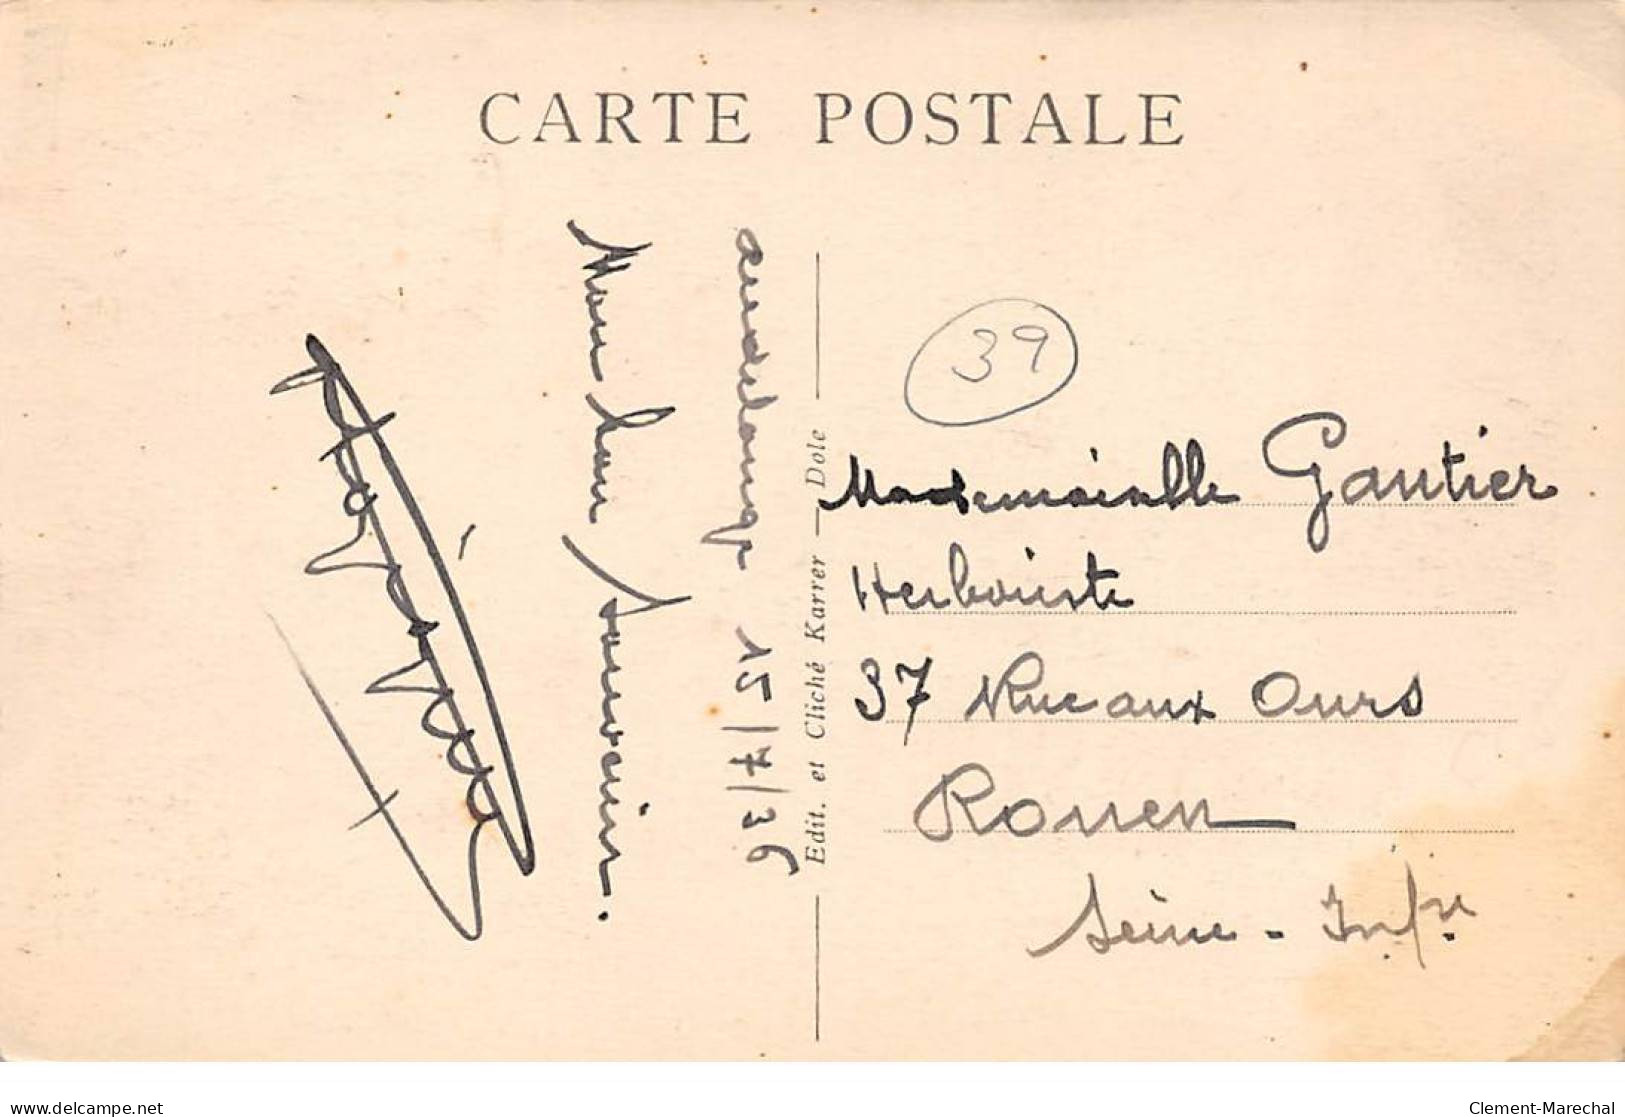 CARTE POSTALE
Audelange 15/7/36
Mon bon souvenir.
Edit. et Cliché Karrer — Dole
39
Mademoiselle Gautier
Herboriste
37 Rue aux Ours
Rouen
Seine - Infre
delcampe.net
Clement-Marechal